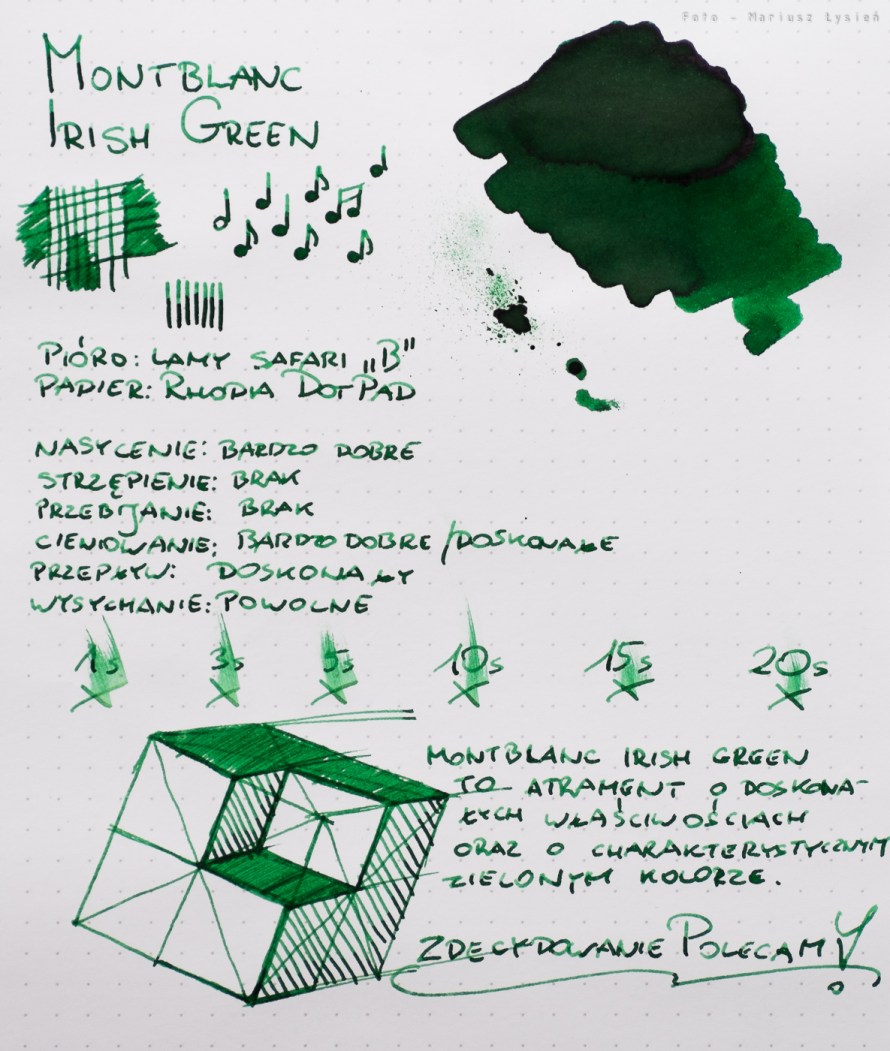 Foto - Mariusz Łysień
MONTBLANC
IRISH GREEN
PIÓRO: LAMY SAFARI „B"
PAPIER: RHODIA DOTPAD
NASYCENIE: BARDZO DOBRE
STRZĘPIENIE: BRAK
PRZEBIJANIE: BRAK
CIENIOWANIE: BARDZO DOBRE/DOSKONAŁE
PRZEPŁYW: DOSKONAŁY
WYSYCHANIE: POWOLNE
1s 3s 5s 10s 15s 20s
MONTBLANC IRISH GREEN
TO ATRAMENT O DOSKONA-
ŁYCH WŁAŚCIWOŚCIACH
ORAZ O CHARAKTERYSTYCZNYM
ZIELONYM KOLORZE.
ZDECYDOWANIE POLECAMY!